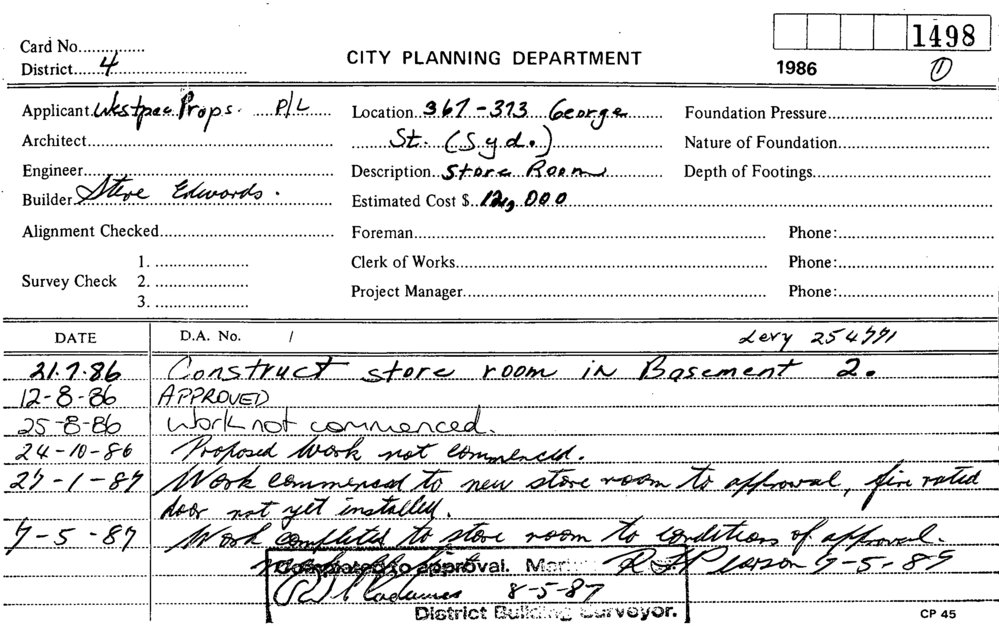 1498
Card No...............
District......4.............................
CITY PLANNING DEPARTMENT
1986 ①
Applicant Westpac Props. P/L
Location 367-373 George
Foundation Pressure
Architect
St. (Syd.)
Nature of Foundation
Engineer
Description Store Room
Depth of Footings
Builder Steve Edwards.
Estimated Cost $ 12,000
Alignment Checked
Foreman
Phone:
Survey Check 1.
2.
3.
Clerk of Works
Phone:
Project Manager
Phone:
DATE D.A. No. / Levy 254771
21.7.86 Construct store room in Basement 2.
12-8-86 APPROVED
25-8-86 Work not commenced.
24-10-86 Proposed Work not commenced.
27-1-87 Work commenced to new store room to approval, fire rated
door not yet installed.
7-5-87 Work completed to store room to conditions of approval.
Completed to approval. R Pearson 7-5-87
8-5-87
District Building Surveyor.
CP 45